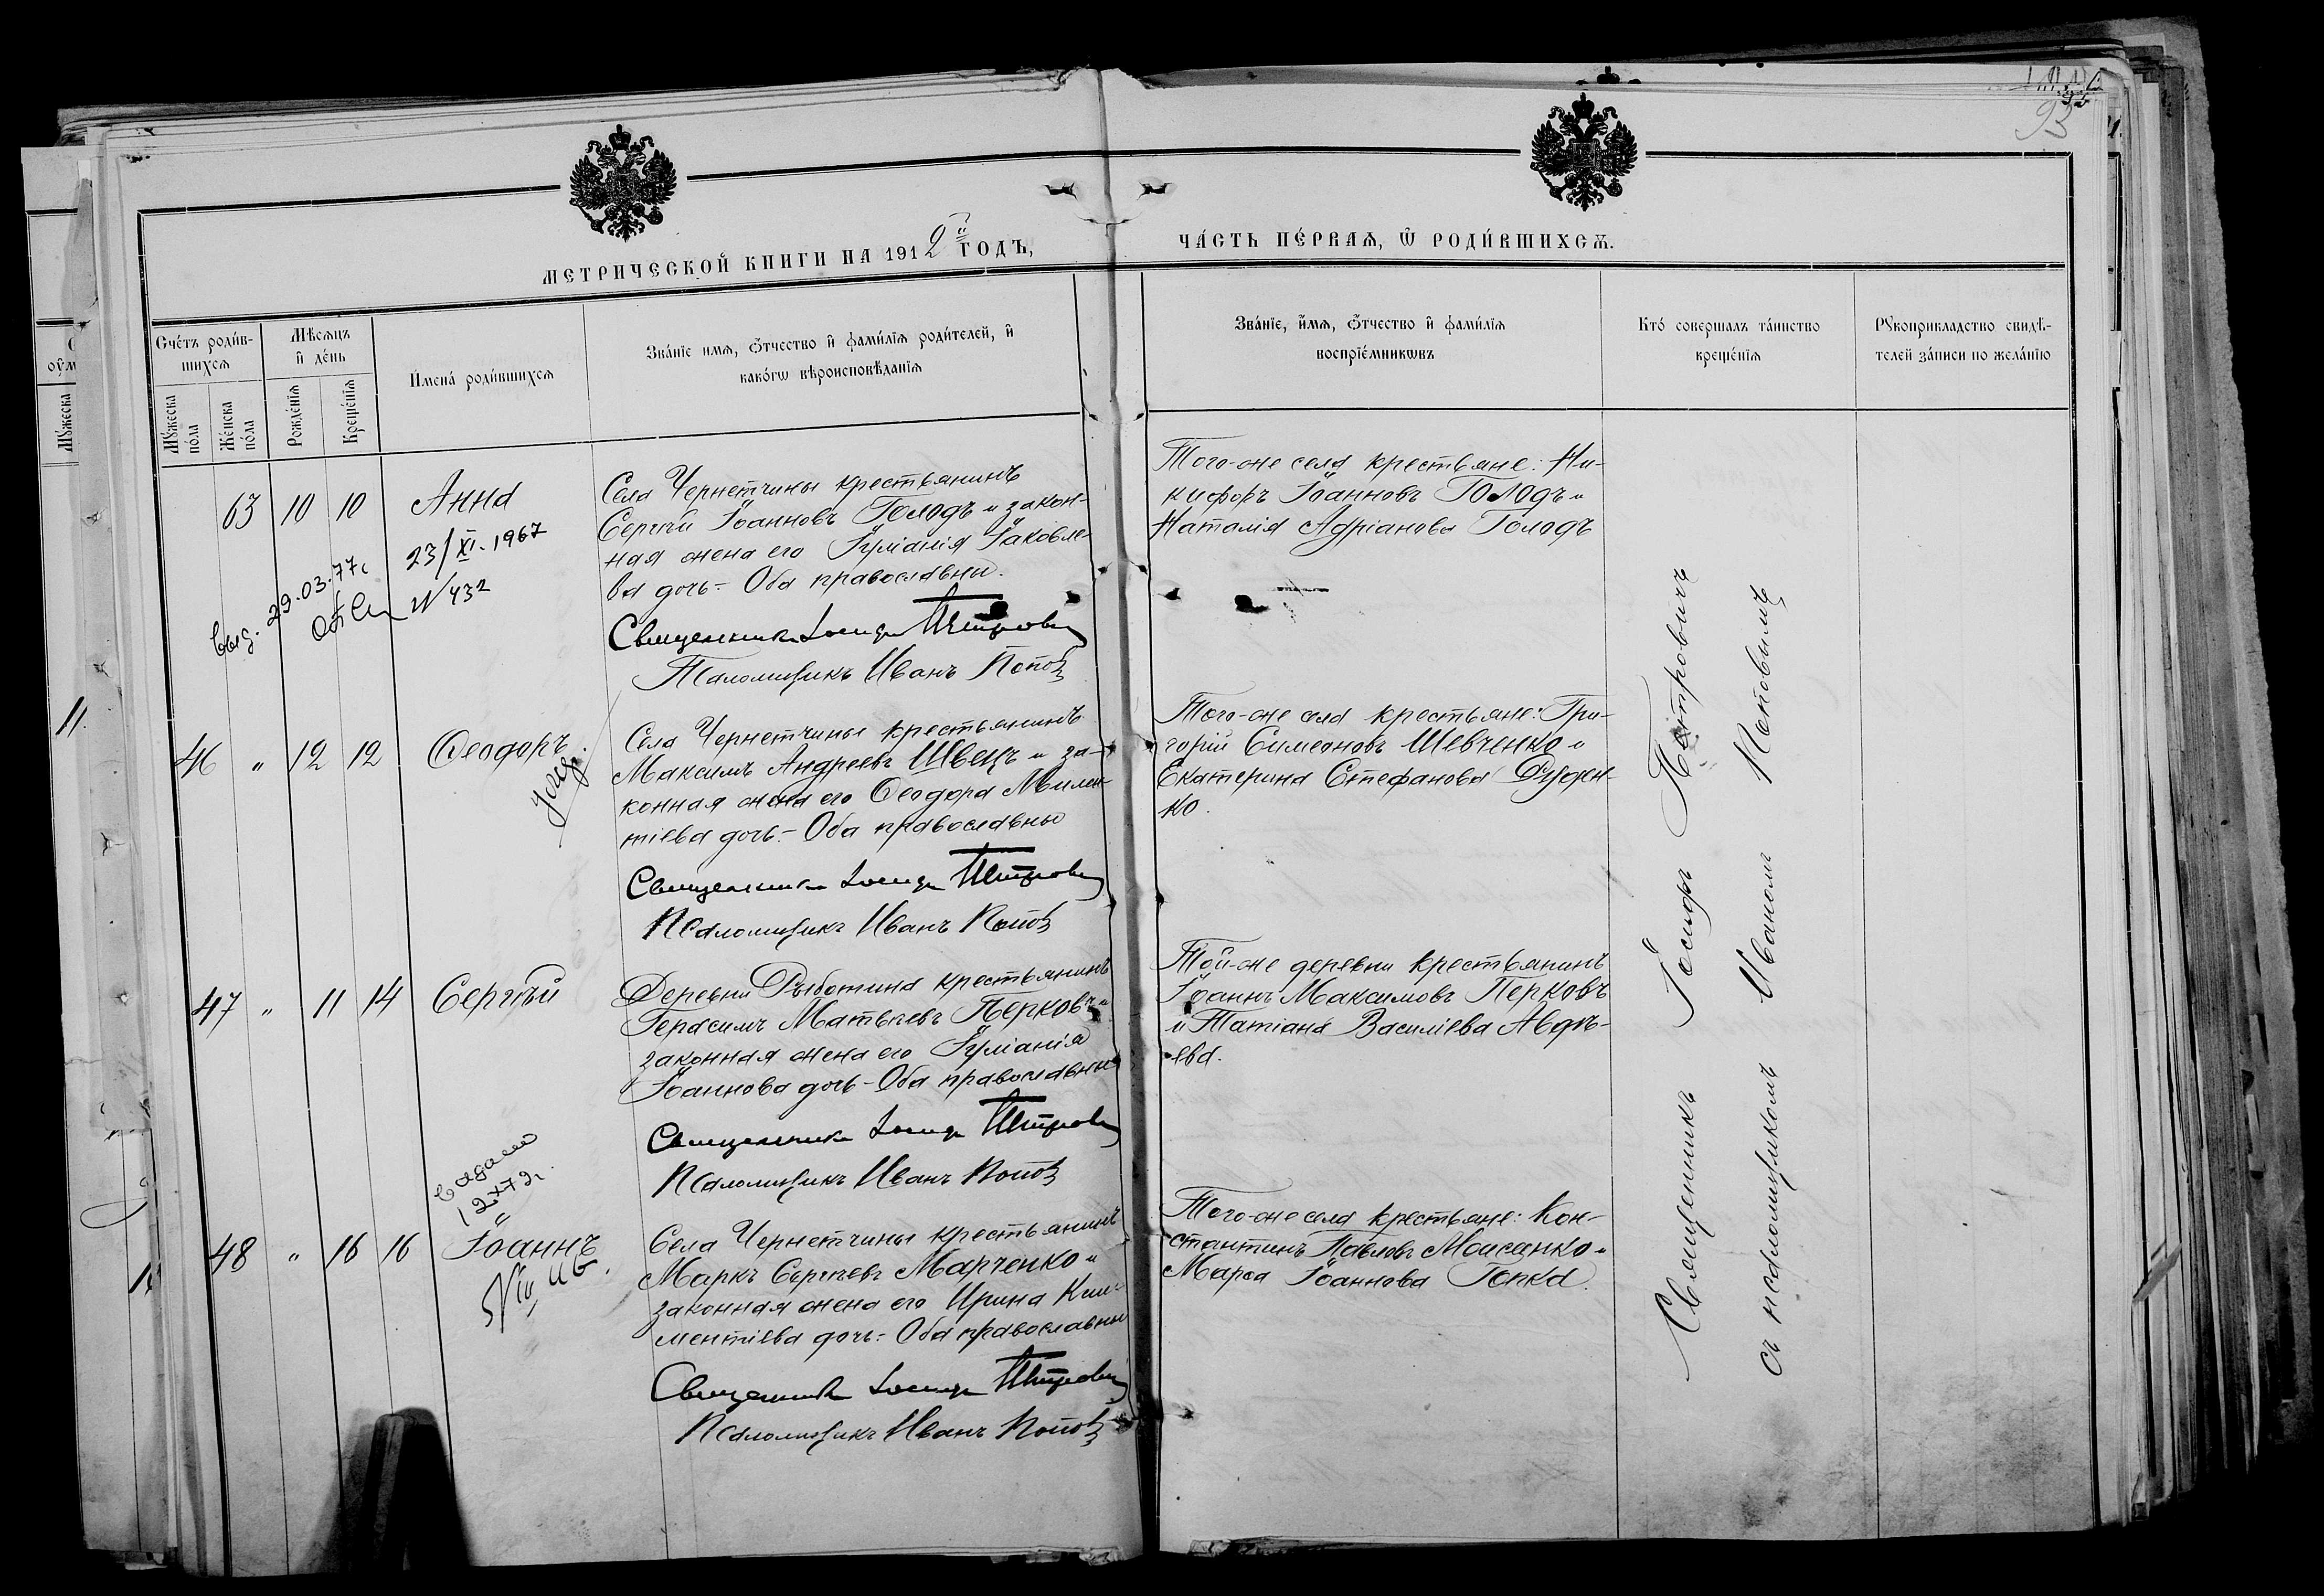 93
МЕТРИЧЕСКОЙ КНИГИ НА 1912й ГОДЪ,
ЧА́СТЬ ПЕ́РВАѦ, Ѿ РОДИ́ВШИХСѦ.
Сче́тъ роди́в-
шихсѧ
Мꙋ́жеска
по́ла
Же́нска
по́ла
Мѣ́сѧцъ
и҆ де́нь
Рожде́нїѧ
Креще́нїѧ
И҆мена̀ роди́вшихсѧ
Зва́нїе имѧ, ѻ҆́тчество и҆ фами́лїѧ роди́телей, и҆
како́гѡ вѣроисповѣ́данїѧ
Зва́нїе, и҆́мѧ, ѻ҆́тчество и҆ фами́лїѧ
воспрїе́мникѡвъ
Кто́ совершалъ та́инство
креще́нїѧ
Рꙋкоприкладство свидѣ́-
телей за́писи по жела́нїю
63 10 10 Анна
Села Чернетчины крестьянинъ
Сергѣй Іоанновъ Голодъ и закон-
ная жена его Іуліанія Іаковле-
ва дочь.- Оба православны.
Священникъ Іосифъ Петровичъ
Псаломщикъ Иванъ Поповъ
Того-же села крестьяне: Ни-
кифоръ Іоанновъ Голодъ и
Наталія Адріанова Голодъ
23/XI.1967
N 432
выд. 29.03.77г
46 " 12 12 Ѳеодоръ.
Села Чернетчины крестьянинъ
Максимъ Андреевъ Швецъ и за-
конная жена его Ѳеодора Милен-
тіева дочь.- Оба православны
Священникъ Іосифъ Петровичъ
Псаломщикъ Иванъ Поповъ
Того-же села крестьяне: Гри-
горій Симеоновъ Шевченко и
Екатерина Стефанова
ко.
47 " 11 14 Сергѣй
Деревни Рыботина крестьянинъ
Герасимъ Матвѣевъ Перковъ и
законная жена его Іуліанія
Іоаннова дочь - Оба православны
Священникъ Іосифъ Петровичъ
Псаломщикъ Иванъ Поповъ
Той-же деревни крестьянинъ
Іоаннъ Максимовъ Перковъ
и Татіана Василіева Авдѣ-
ева.
48 " 16 16 Іоаннъ
Села Чернетчины крестьянинъ
Маркъ Сергѣевъ Марченко и
законная жена его Ирина Кли-
ментіева дочь.- Оба православны
Священникъ Іосифъ Петровичъ
Псаломщикъ Иванъ Поповъ
Того-же села крестьяне: Кон-
стантинъ Павловъ Моисеенко и
Марѳа Іоаннова Гопка.
Священникъ Іосифъ Петровичъ
съ псаломщикомъ Иваномъ Поповымъ